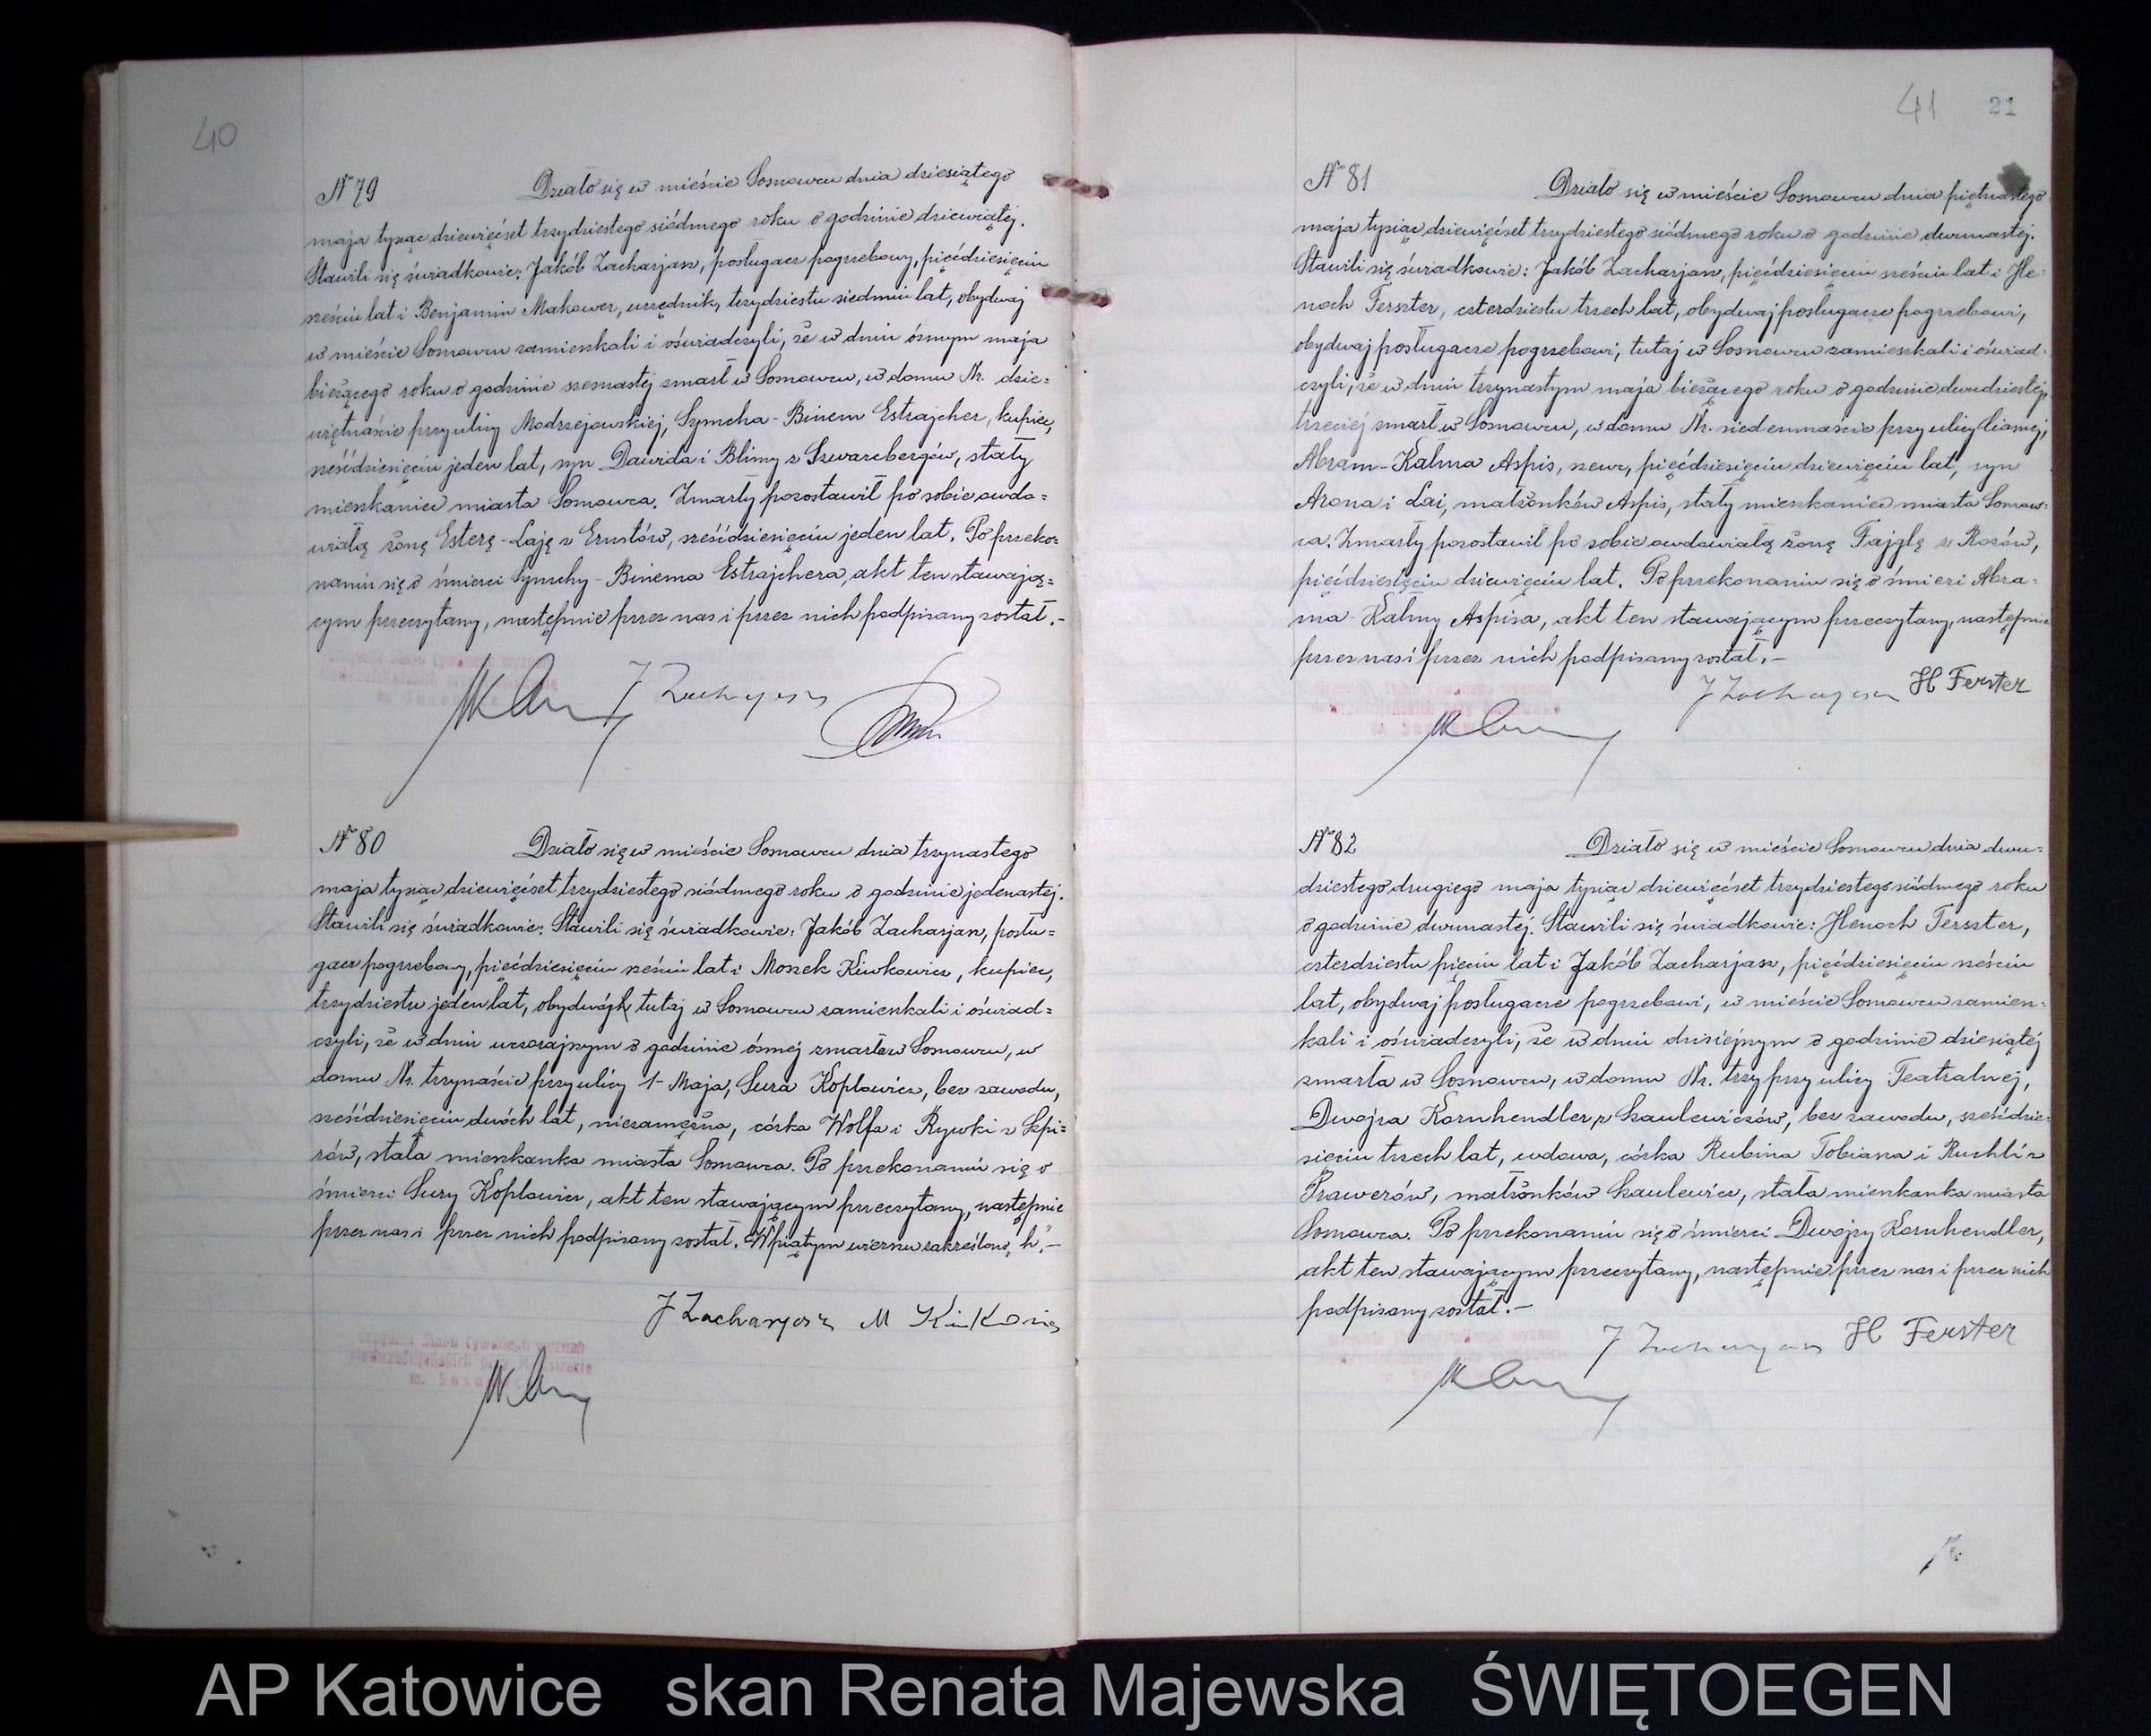 40
№ 79 Działo się w mieście Sosnowcu dnia dziesiątego
maja tysiąc dziewięćset trzydziestego siódmego roku o godzinie dziewiątej.
Stawili się świadkowie: Jakób Zacharjasz, posługacz pogrzebowy, pięćdziesięciu
sześciu lat i Benjamin Makower, urzędnik, trzydziestu siedmiu lat, obydwaj
w mieście Sosnowcu zamieszkali i oświadczyli, że w dniu ósmym maja
bieżącego roku o godzinie szesnastej zmarł w Sosnowcu, w domu Nr. dzie=
więtnaście przy ulicy Modrzejowskiej, Symcha-Binem Estrajcher, kupiec,
sześćdziesięciu jeden lat, syn Dawida i Blimy z Szwarcbergów, stały
mieszkaniec miasta Sosnowca. Zmarły pozostawił po sobie owdo=
wiałą żonę Esterę-Laję z Ernstów, sześćdziesięciu jeden lat. Po przeko=
naniu się o śmierci Symchy-Binema Estrajchera, akt ten stawają=
cym przeczytany, następnie przez nas i przez nich podpisany został.-
J Zacharjasz
№ 80 Działo się w mieście Sosnowcu dnia trzynastego
maja tysiąc dziewięćset trzydziestego siódmego roku o godzinie jedenastej.
Stawili się świadkowie: Stawili się świadkowie: Jakób Zacharjasz, posłu=
gacz pogrzebowy, pięćdziesięciu sześciu lat i Moszek Kiwkowicz, kupiec,
trzydziestu jeden lat, obydwajh tutaj w Sosnowcu zamieszkali i oświad=
czyli, że w dniu wczorajszym o godzinie ósmej zmarła w Sosnowcu, w
domu Nr. trzynaście przy ulicy 1-Maja, Sura Koplowicz, bez zawodu,
sześćdziesięciu dwóch lat, niezamężna, córka Wolfa i Rywki z Szpi=
rów, stała mieszkanka miasta Sosnowca. Po przekonaniu się o
śmierci Sury Koplowicz, akt ten stawającym przeczytany, następnie
przez nas i przez nich podpisany został. W piątym wierszu zakreślono „h".-
J Zacharjasz M Kiwkowicz
41 21
№ 81 Działo się w mieście Sosnowcu dnia piętnastego
maja tysiąc dziewięćset trzydziestego siódmego roku o godzinie dwunastej.
Stawili się świadkowie: Jakób Zacharjasz, pięćdziesięciu sześciu lat i He=
noch Ferszter, czterdziestu trzech lat, obydwaj posługacze pogrzebowi,
obydwaj posługacze pogrzebowi, tutaj w Sosnowcu zamieszkali i oświad=
czyli, że w dniu trzynastym maja bieżącego roku o godzinie dwudziestej
trzeciej zmarł w Sosnowcu, w domu Nr. siedemnaście przy ulicy Ciasnej,
Abram-Kalma Aspis, szewc, pięćdziesięciu dziewięciu lat, syn
Arona i Lai, małżonków Aspis, stały mieszkaniec miasta Sosnow=
ca. Zmarły pozostawił po sobie owdowiałą żonę Fajglę z Rozów,
pięćdziesięciu dziewięciu lat. Po przekonaniu się o śmierci Abra=
ma-Kalmy Aspisa, akt ten stawającym przeczytany, następnie
przez nas i przez nich podpisany został.-
J Zacharjasz H Ferster
№ 82 Działo się w mieście Sosnowcu dnia dwu=
dziestego drugiego maja tysiąc dziewięćset trzydziestego siódmego roku
o godzinie dwunastej. Stawili się świadkowie: Henoch Ferszter,
czterdziestu pięciu lat i Jakób Zacharjasz, pięćdziesięciu sześciu
lat, obydwaj posługacze pogrzebowi, w mieście Sosnowcu zamiesz=
kali i oświadczyli, że w dniu dzisiejszym o godzinie dziesiątej
zmarła w Sosnowcu, w domu Nr. trzy przy ulicy Teatralnej,
Dwojra Kornhendler z Szaulewiczów, bez zawodu, sześćdzie=
sięciu trzech lat, wdowa, córka Rubina Tobiasza i Ruchli z
Prawerów, małżonków Szaulewicz, stała mieszkanka miasta
Sosnowca. Po przekonaniu się o śmierci Dwojry Kornhendler,
akt ten stawającym przeczytany, następnie przez nas i przez nich
podpisany został.-
J Zacharjasz H Ferster
AP Katowice skan Renata Majewska ŚWIĘTOEGEN